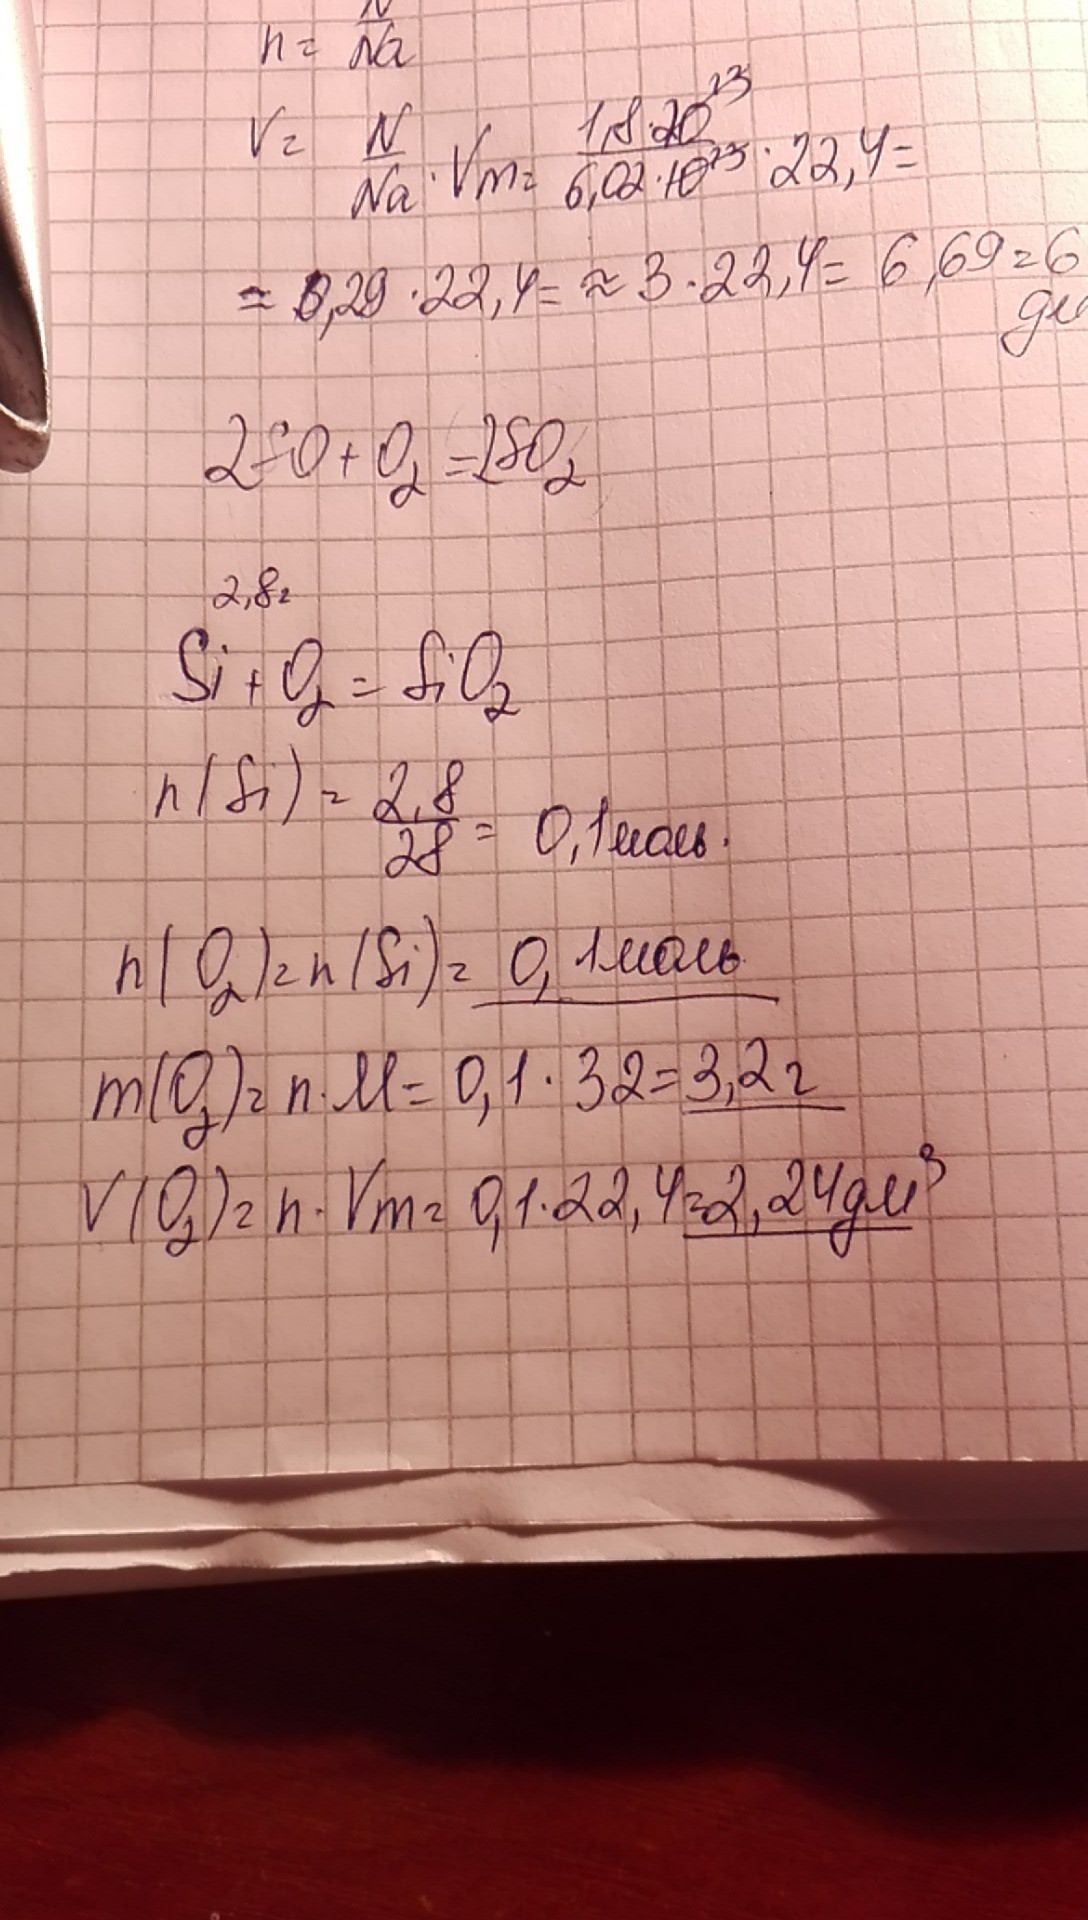 n = N/Na
V = N/Na · Vm = 1,8·20²³/6,02·10²³ · 22,4 =
= 0,29 · 22,4 = ≈ 3 · 22,4 = 6,69 = 6
2SO + O₂ = 2SO₂
2,8г
Si + O₂ = SiO₂
n(Si) = 2,8/28 = 0,1 моль.
n(O₂) = n(Si) = 0,1 моль
m(O₂) = n · M = 0,1 · 32 = 3,2г
V(O₂) = n · Vm = 0,1 · 22,4 = 2,24 дм³